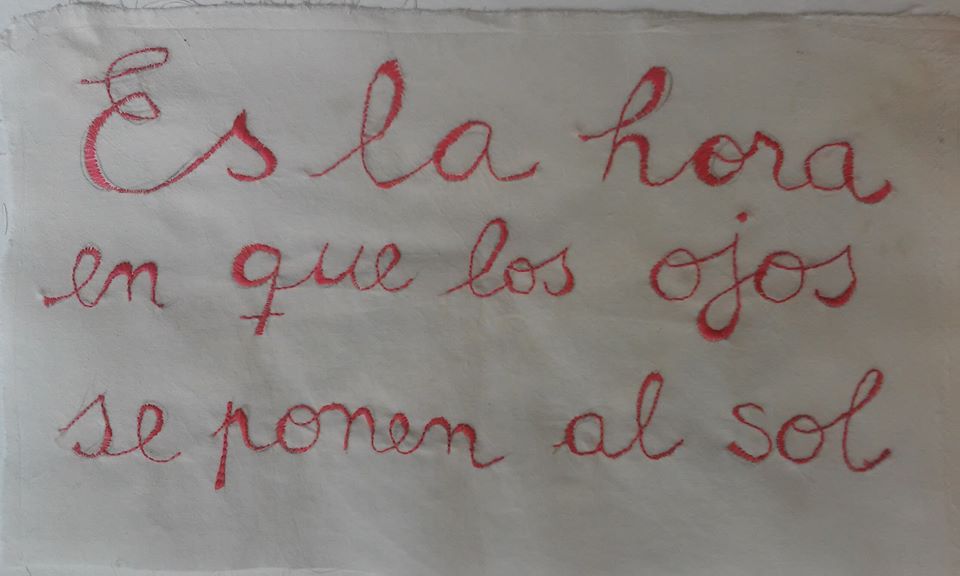 Es la hora
en que los ojos
se ponen al sol